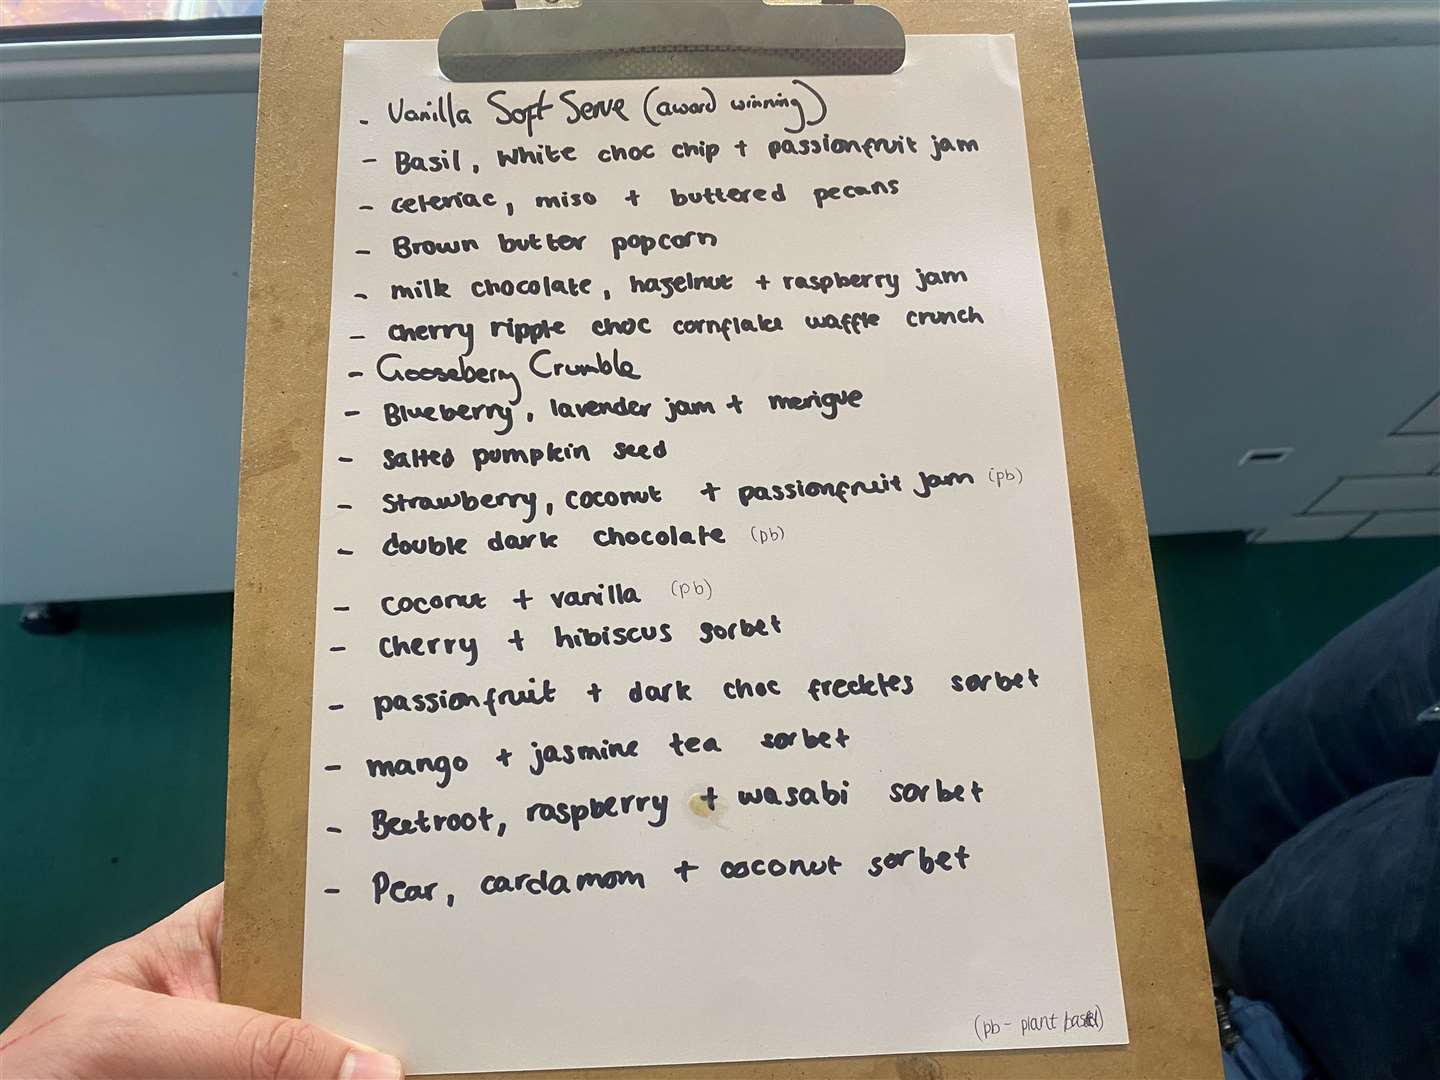 - Vanilla Soft Serve (award winning)
- Basil, white choc chip + passionfruit jam
- celeriac, miso + buttered pecans
- Brown butter popcorn
- milk chocolate, hazelnut + raspberry jam
- cherry ripple choc cornflake waffle crunch
- Gooseberry Crumble
- Blueberry, lavender jam + merigue
- salted pumpkin seed
- strawberry, coconut + passionfruit jam (pb)
- double dark chocolate (pb)
- coconut + vanilla (pb)
- cherry + hibiscus sorbet
- passionfruit + dark choc freckles sorbet
- mango + jasmine tea sorbet
- Beetroot, raspberry + wasabi sorbet
- Pear, cardamom + coconut sorbet
(pb - plant based)